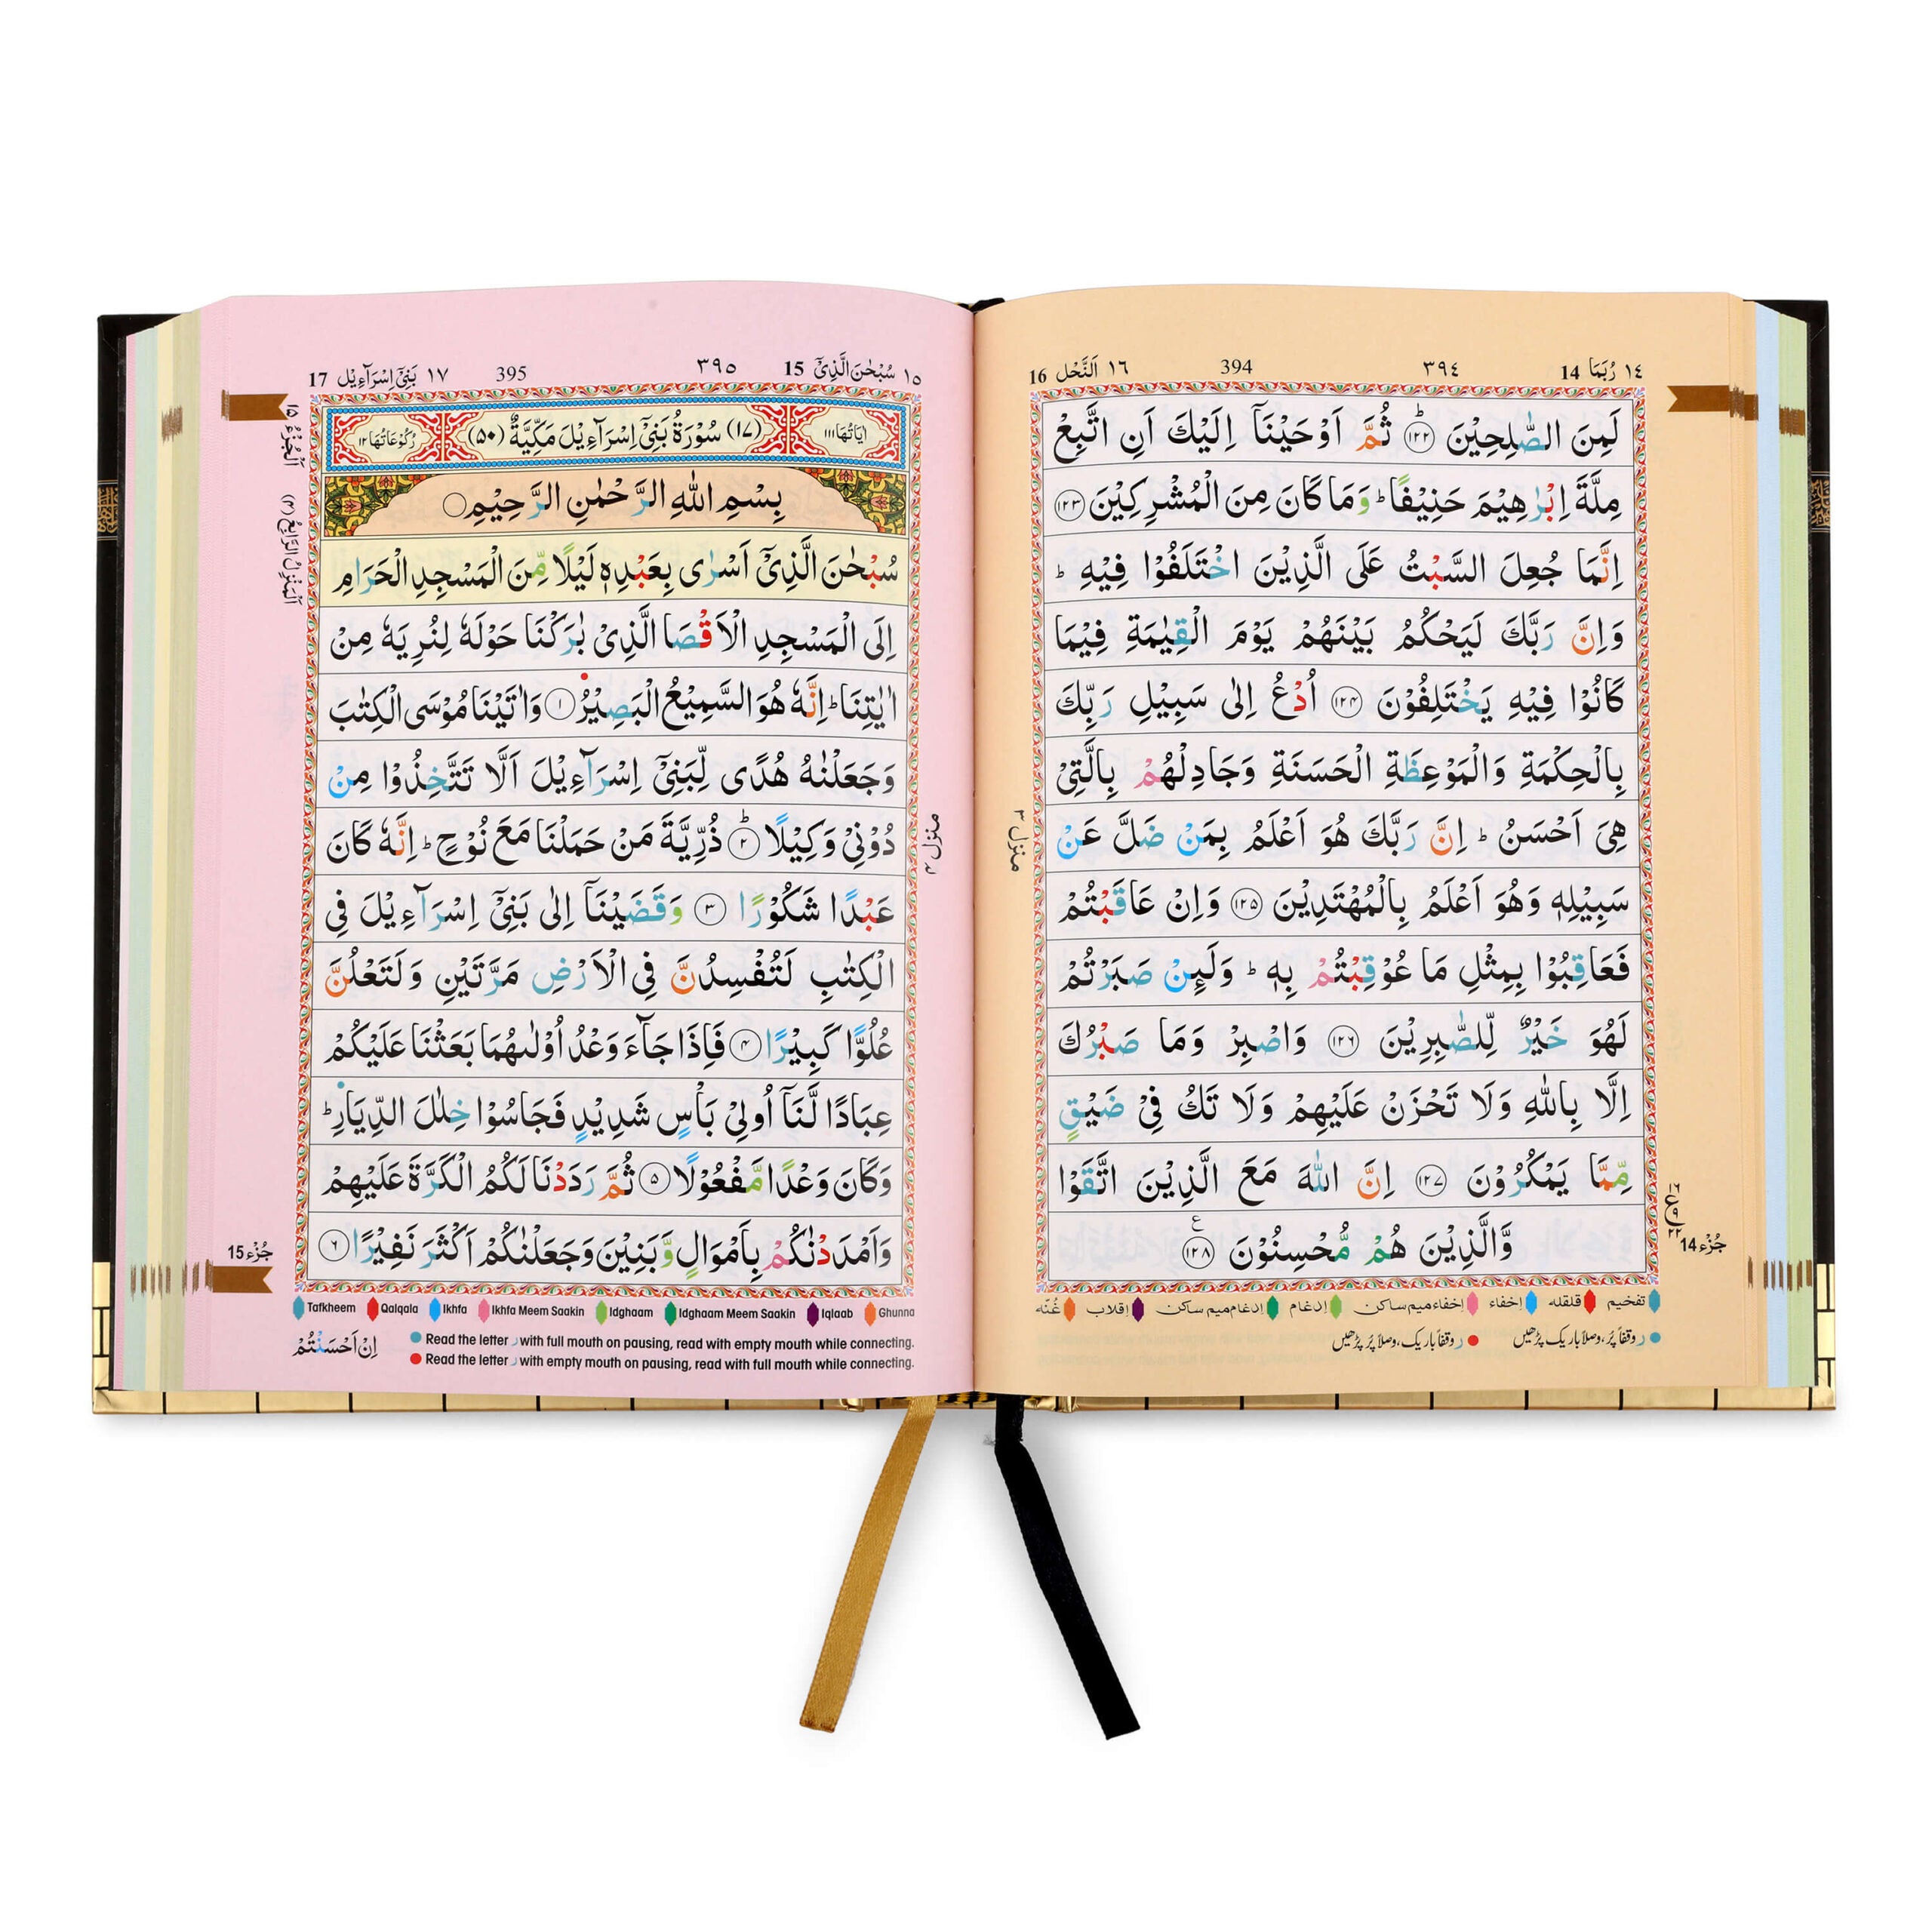 ١٤ رُبَمَا 14 ٣٩٤ 394 ١٦ اَلنَّحْل 16
لَمِنَ الصّٰلِحِیْنَ ﴿۱۲۲﴾ؕ ثُمَّ اَوْحَیْنَاۤ اِلَیْكَ اَنِ اتَّبِعْ
مِلَّةَ اِبْرٰهِیْمَ حَنِیْفًا ؕ وَمَا كَانَ مِنَ الْمُشْرِكِیْنَ ﴿۱۲۳﴾
اِنَّمَا جُعِلَ السَّبْتُ عَلَی الَّذِیْنَ اخْتَلَفُوْا فِیْهِ ؕ
وَاِنَّ رَبَّكَ لَیَحْكُمُ بَیْنَهُمْ یَوْمَ الْقِیٰمَةِ فِیْمَا
كَانُوْا فِیْهِ یَخْتَلِفُوْنَ ﴿۱۲۴﴾ اُدْعُ اِلٰی سَبِیْلِ رَبِّكَ
بِالْحِكْمَةِ وَالْمَوْعِظَةِ الْحَسَنَةِ وَجَادِلْهُمْ بِالَّتِیْ
هِیَ اَحْسَنُ ؕ اِنَّ رَبَّكَ هُوَ اَعْلَمُ بِمَنْ ضَلَّ عَنْ
سَبِیْلِهٖ وَهُوَ اَعْلَمُ بِالْمُهْتَدِیْنَ ﴿۱۲۵﴾ وَاِنْ عَاقَبْتُمْ
فَعَاقِبُوْا بِمِثْلِ مَا عُوْقِبْتُمْ بِهٖ ؕ وَلَىِٕنْ صَبَرْتُمْ
لَهُوَ خَیْرٌ لِّلصّٰبِرِیْنَ ﴿۱۲۶﴾ وَاصْبِرْ وَمَا صَبْرُكَ
اِلَّا بِاللّٰهِ وَلَا تَحْزَنْ عَلَیْهِمْ وَلَا تَكُ فِیْ ضَیْقٍ
مِّمَّا یَمْكُرُوْنَ ﴿۱۲۷﴾ اِنَّ اللّٰهَ مَعَ الَّذِیْنَ اتَّقَوْا
وَّالَّذِیْنَ هُمْ مُّحْسِنُوْنَ ﴿۱۲۸﴾ ع
منزل ۳
جُزْء 14
تفخیم قلقلہ إخفاء إخفاءمیم ساکن إدغام إدغام میم ساکن إقلاب غُنّه
ر وقفاً پُر، وصلاً باریک پڑھیں ر وقفاً باریک، وصلاً پُر پڑھیں
١٥ سُبْحٰنَ الَّذِیْۤ 15 ٣٩٥ 395 ١٧ بَنِیْۤ اِسْرَآءِیْل 17
اٰیَاتُهَا ۱۱۱ (۱۷) سُوْرَةُ بَنِیْۤ اِسْرَآءِیْلَ مَكِّیَّةٌ (۵۰) رُكُوْعَاتُهَا ۱۲
بِسْمِ اللّٰهِ الرَّحْمٰنِ الرَّحِیْمِ
سُبْحٰنَ الَّذِیْۤ اَسْرٰی بِعَبْدِهٖ لَیْلًا مِّنَ الْمَسْجِدِ الْحَرَامِ
اِلَی الْمَسْجِدِ الْاَقْصَا الَّذِیْ بٰرَكْنَا حَوْلَهٗ لِنُرِیَهٗ مِنْ
اٰیٰتِنَا ؕ اِنَّهٗ هُوَ السَّمِیْعُ الْبَصِیْرُ ﴿۱﴾ وَاٰتَیْنَا مُوْسَی الْكِتٰبَ
وَجَعَلْنٰهُ هُدًی لِّبَنِیْۤ اِسْرَآءِیْلَ اَلَّا تَتَّخِذُوْا مِنْ
دُوْنِیْ وَكِیْلًا ﴿۲﴾ؕ ذُرِّیَّةَ مَنْ حَمَلْنَا مَعَ نُوْحٍ ؕ اِنَّهٗ كَانَ
عَبْدًا شَكُوْرًا ﴿۳﴾ وَقَضَیْنَاۤ اِلٰی بَنِیْۤ اِسْرَآءِیْلَ فِی
الْكِتٰبِ لَتُفْسِدُنَّ فِی الْاَرْضِ مَرَّتَیْنِ وَلَتَعْلُنَّ
عُلُوًّا كَبِیْرًا ﴿۴﴾ فَاِذَا جَآءَ وَعْدُ اُوْلٰىهُمَا بَعَثْنَا عَلَیْكُمْ
عِبَادًا لَّنَاۤ اُولِیْ بَاْسٍ شَدِیْدٍ فَجَاسُوْا خِلٰلَ الدِّیَارِ ؕ
وَكَانَ وَعْدًا مَّفْعُوْلًا ﴿۵﴾ ثُمَّ رَدَدْنَا لَكُمُ الْكَرَّةَ عَلَیْهِمْ
وَاَمْدَدْنٰكُمْ بِاَمْوَالٍ وَّبَنِیْنَ وَجَعَلْنٰكُمْ اَكْثَرَ نَفِیْرًا ﴿۶﴾
منزل ۴
اَلْجُزْءُ ۱۵
اَلْمَنْزِلُ الرَّابِعُ (۴)
جُزْء 15
Tafkheem Qalqala Ikhfa Ikhfa Meem Saakin Idghaam Idghaam Meem Saakin Iqlaab Ghunna
Read the letter ر with full mouth on pausing, read with empty mouth while connecting.
Read the letter ر with empty mouth on pausing, read with full mouth while connecting.
اِنْ اَحْسَنْتُمْ